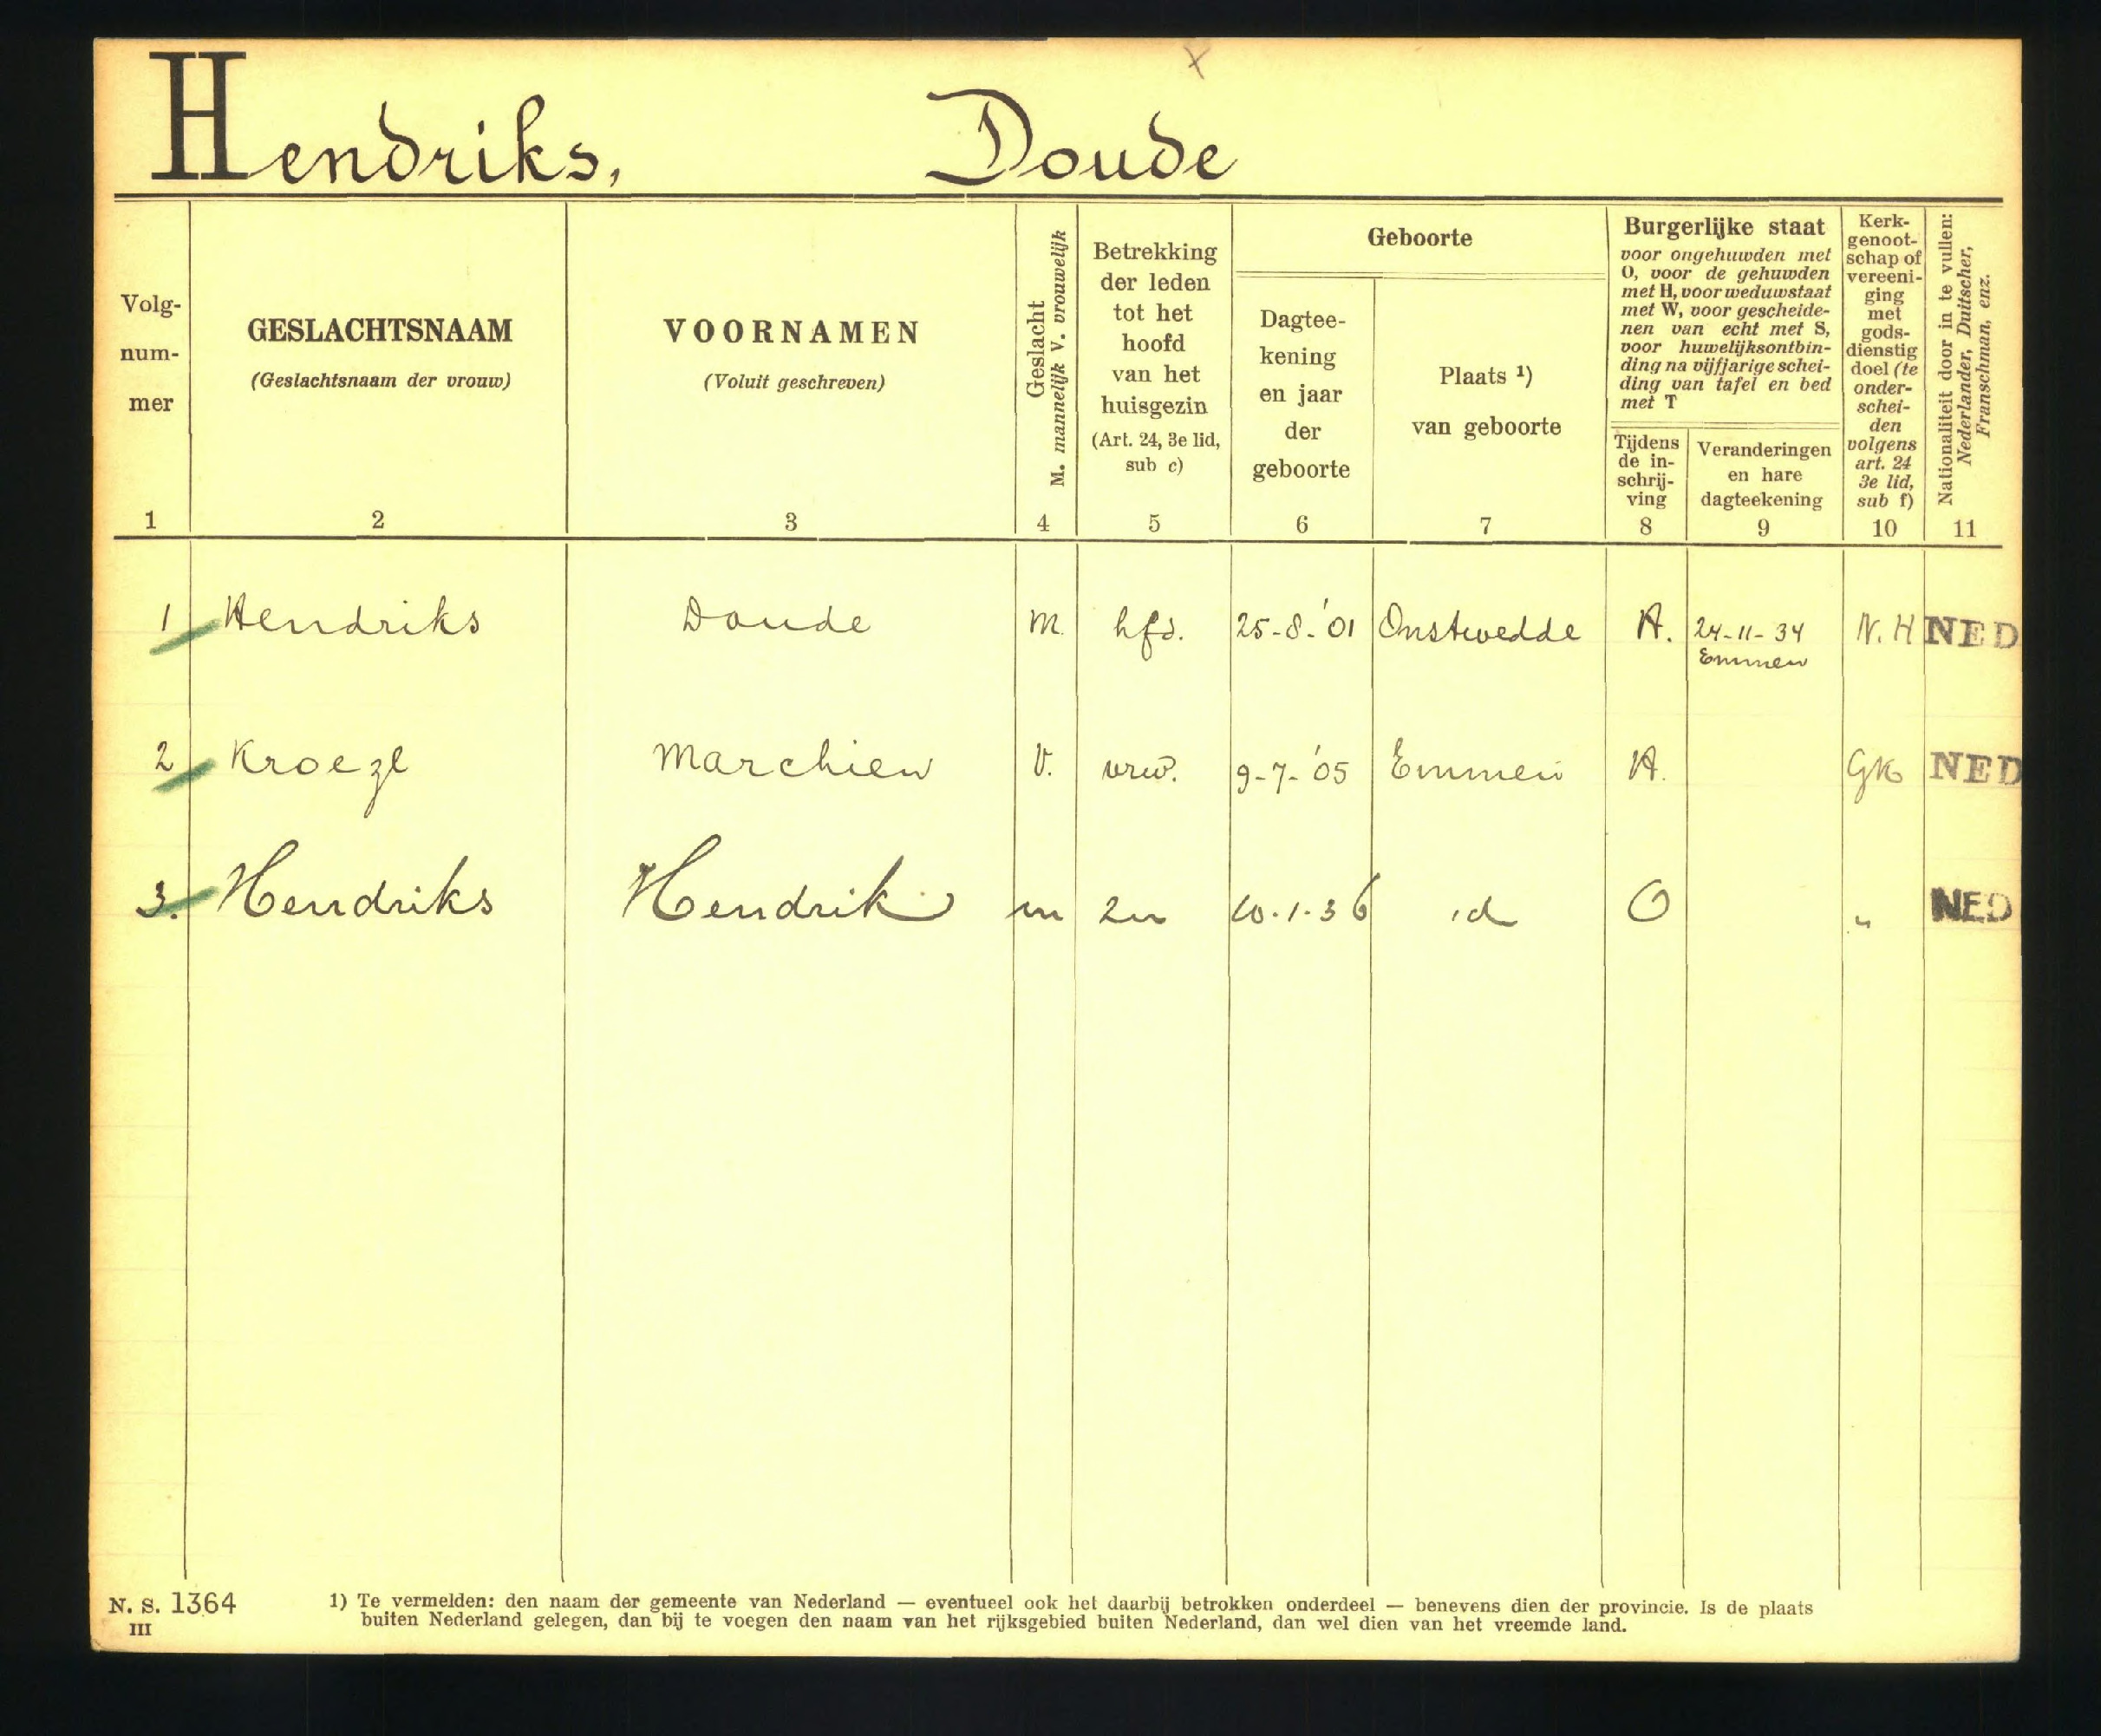 Hendriks, Doude
Volg-
num-
mer
1
GESLACHTSNAAM
(Geslachtsnaam der vrouw)
2
VOORNAMEN
(Voluit geschreven)
3
Geslacht
M. mannelijk V. vrouwelijk
4
Betrekking
der leden
tot het
hoofd
van het
huisgezin
(Art. 24, 3e lid,
sub c)
5
Geboorte
Dagtee-
kening
en jaar
der
geboorte
6
Plaats ¹)
van geboorte
7
Burgerlijke staat
voor ongehuwden met
O, voor de gehuwden
met H, voor weduwstaat
met W, voor gescheide-
nen van echt met S,
voor huwelijksontbin-
ding na vijfjarige schei-
ding van tafel en bed
met T
Tijdens
de in-
schrij-
ving
8
Veranderingen
en hare
dagteekening
9
Kerk-
genoot-
schap of
vereeni-
ging
met
gods-
dienstig
doel (te
onder-
schei-
den
volgens
art. 24
3e lid,
sub f)
10
Nationaliteit door in te vullen:
Nederlander, Duitscher,
Franschman, enz.
11
1 Hendriks Doude M. hfd. 25-8-'01 Onstwedde H. 24-11-34 N.H NED
Emmen
2 Kroeze Marchien V. vrw. 9-7-'05 Emmen H. GK NED
3. Hendriks Hendrik m zn 10.1.36 id O " NED
N. S. 1364
III
1) Te vermelden: den naam der gemeente van Nederland — eventueel ook het daarbij betrokken onderdeel — benevens dien der provincie. Is de plaats
buiten Nederland gelegen, dan bij te voegen den naam van het rijksgebied buiten Nederland, dan wel dien van het vreemde land.